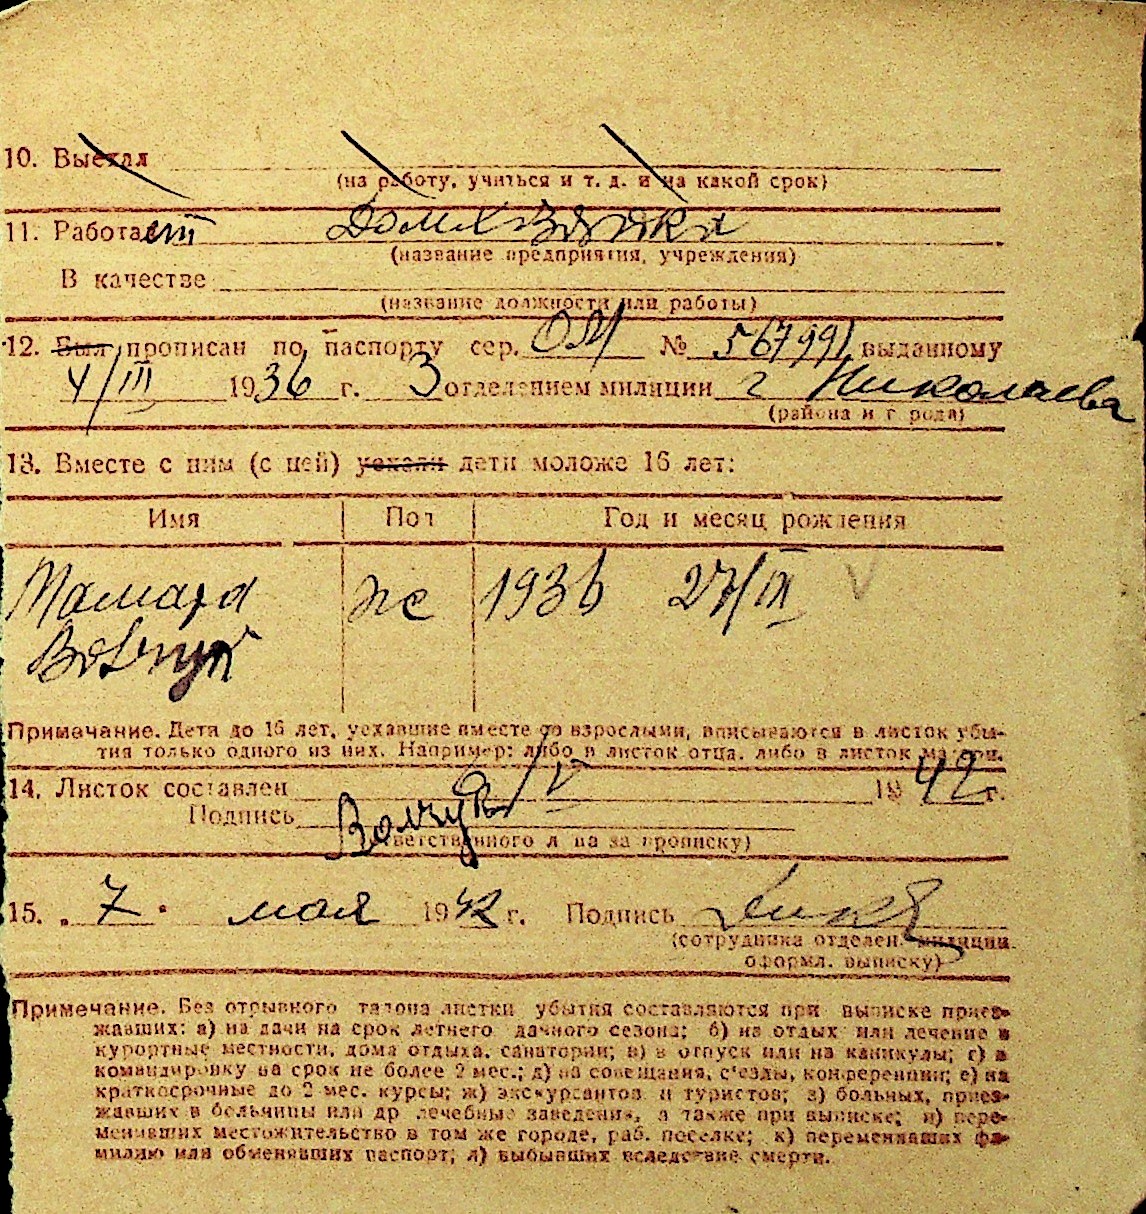 10. Выехал
(на работу, учиться и т. д. и на какой срок)
11. Работает Домхозяйка
(название предприятия, учреждения)
В качестве
(название должности или работы)
12. Был прописан по паспорту сер. № 567991 выданному
4/III 1936 г. 3 отделением милиции г Николаева
(района и города)
13. Вместе с ним (с ней) уехали дети моложе 16 лет:
Имя Пол Год и месяц рождения
Тамара же 1936 27/III
Вовчук
Примечание. Дети до 16 лет, уехавшие вместе со взрослыми, вписываются в листок убы-
тия только одного из них. Например: либо в листок отца, либо в листок матери.
14. Листок составлен /V 1942 г.
Подпись
(ответственного лица за прописку)
15. „ 7 " мая 1942 г. Подпись
(сотрудника отделен. милиции
оформл. выписку)
Примечание. Без отрывного талона листки убытия составляются при выписке приез-
жавших: а) на дачи на срок летнего дачного сезона; б) на отдых или лечение в
курортные местности, дома отдыха, санатории; в) в отпуск или на каникулы; г) в
командировку на срок не более 2 мес.; д) на совещания, с'езды, конференции; е) на
краткосрочные до 2 мес. курсы; ж) экскурсантов и туристов; з) больных, приез-
жавших в больницы или др лечебные заведения, а также при выписке; и) пере-
менивших местожительство в том же городе, раб. поселке; к) переменивших фа-
милию или обменявших паспорт; л) выбывших вследствие смерти.